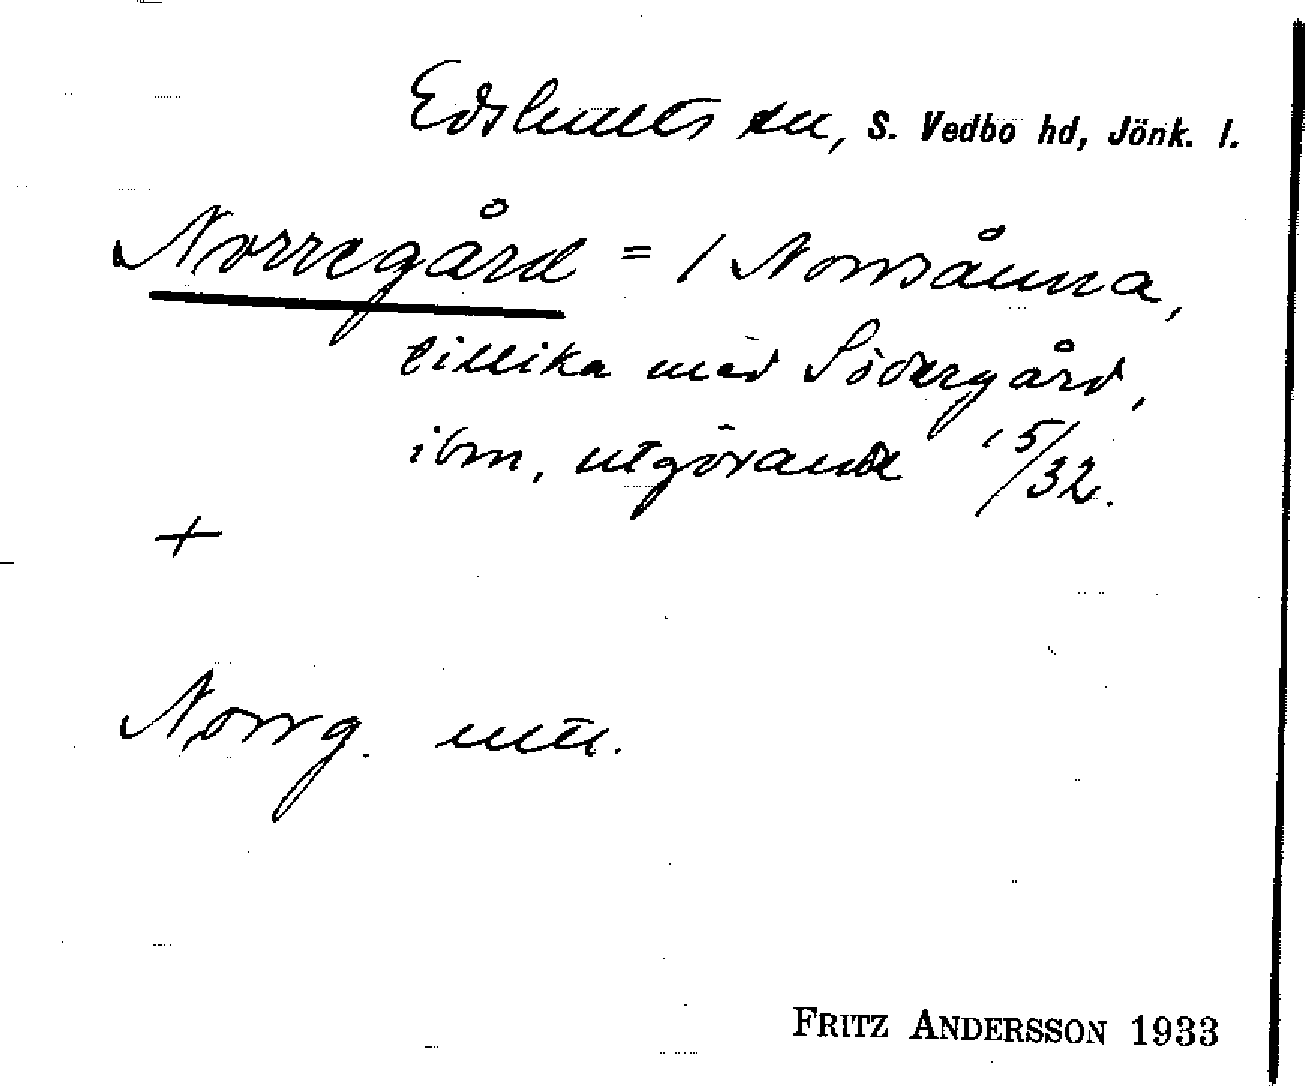 Edshults sn, S. Vedbo hd, Jönk. l.
Norregård = 1 Norrsånna,
tillika med Södergård,
ibm, utgörande 15/32.
+
Norrg. mtl.
FRITZ ANDERSSON 1933